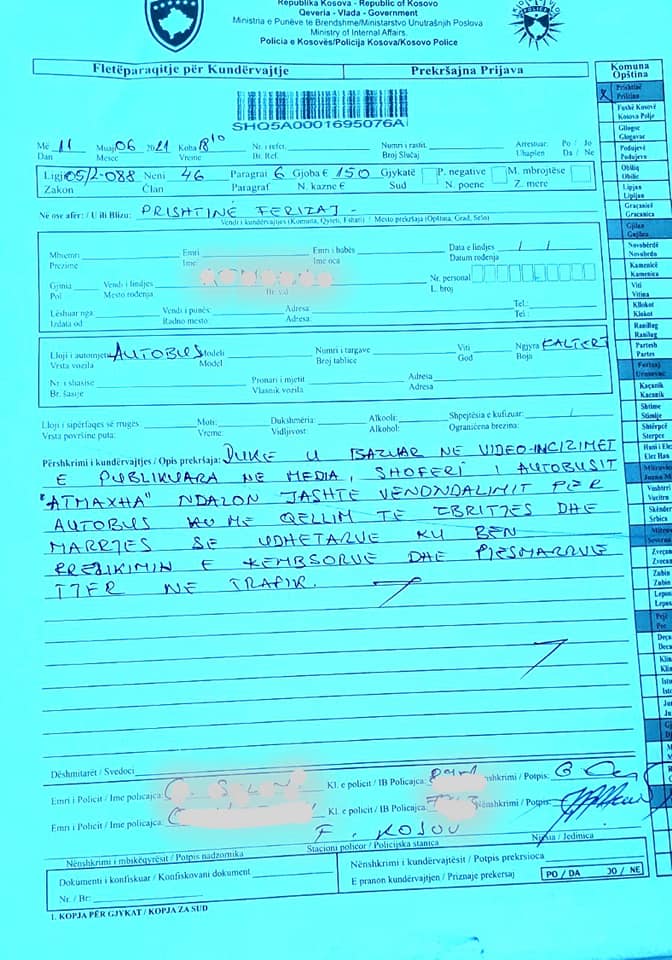 Republika Kosova - Republic of Kosovo
Qeveria - Vlada - Government
Ministria e Punëve te Brendshme/Ministarstvo Unutrašnjih Poslova
Ministry of Internal Affairs.
Policia e Kosovës/Policija Kosova/Kosovo Police
Fletëparaqitje për Kundërvajtje
Prekršajna Prijava
Komuna
Opština
SHQ5A0001695076A
X Prishtinë
Priština
Fushë Kosovë
Kosova Polje
Gllogoc
Glogovac
Podujevë
Podujevo
Obiliq
Obilic
Lipjan
Lipljan
Graçanicë
Gracanica
Gjilan
Gnjilane
Novobërdë
Novobrdo
Kamenicë
Kamenica
Viti
Vitina
Kllokot
Klokot
Ranillug
Ranilug
Partesh
Partes
Ferizaj
Urosevac
Kaçanik
Kacanik
Shtime
Stimlje
Shtërpcë
Sterpce
Hani i Elez
Elez Han
Më 11 Muaj 06 2021 Koha 18 10 Nr. i refer. Numri i rastit Arrestuar: Po / Jo
Dan Mesec Vreme Br. Ref. Broj Slučaj Uhapšen Da / Ne
Ligji 05/L-088 Neni 46 Paragrai 6 Gjoba € 150 Gjykatë P. negative M. mbrojtëse
Zakon Član Paragraf N. kazne € Sud N. poenc Z. mere
Në ose afër: / U ili Blizu: PRISHTINË FERIZAJ -
Vendi i kundërvajtjes (Komuna, Qyteti, Fshati) / Mesto prekršaja (Opština, Grad, Selo)
Mbiemri Emri Emri i babës Data e lindjes / /
Prezime Ime Ime oca Datum rođenja
Gjinia Vendi i lindjes Nr. personal
Pol Mesto rođenja L. broj
Lëshuar nga Vendi i punës Adresa Tel.:
Izdata od Radno mesto Adresa Tel :
Lloji i automjetit AUTOBUS Modeli Numri i targave Viti Ngjyra KALTERT
Vrsta vozila Model Broj tablice God Boja
Nr. i shasise Pronari i mjetit Adresa
Br. šasije Vlasnik vozila Adresa
Lloji i sipërfaqes së rrugës Moti: Dukshmëria: Alkooli: Shpejtësia e kufizuar: /
Vrsta površine puta: Vreme: Vidljivost: Alkohol: Ograničena brezina:
Përshkrimi i kundërvajtjes / Opis prekršaja: DUKE U BAZUAR NE VIDEO-INCIZIMET
E PUBLIKUARA NE MEDIA, SHOFERI I AUTOBUSIT
"ATMAXHA" NDALON JASHTE VENDNDALIMIT PER
AUTOBUS KU ME QELLIM TE ZBRITJES DHE
MARRJES SE UDHETARVE KU BEN
RREZIKIMIN E KEMBSORVE DHE PJESMARRVE
TJER NE TRAFIK.
Dëshmitarët / Svedoci
Emri i Policit / Ime policajca: Kl. e policit / IB Policajca: Nënshkrimi / Potpis:
Emri i Policit / Ime policajca: Kl. e policit / IB Policajca: Nënshkrimi / Potpis:
F. KOSOV
Nënshkrimi i mbikëqyrësit / Potpis nadzornika Stacioni policor / Policijska stanica Njësia / Jedinica
Dokumenti i konfiskuar / Konfiskovani dokument
Nr. / Br:
Nënshkrimi i kundërvajtësit / Potpis prekrsioca
E pranon kundërvajtjen / Priznaje prekersaj PO / DA JO / NE
1. KOPJA PËR GJYKAT / KOPJA ZA SUD